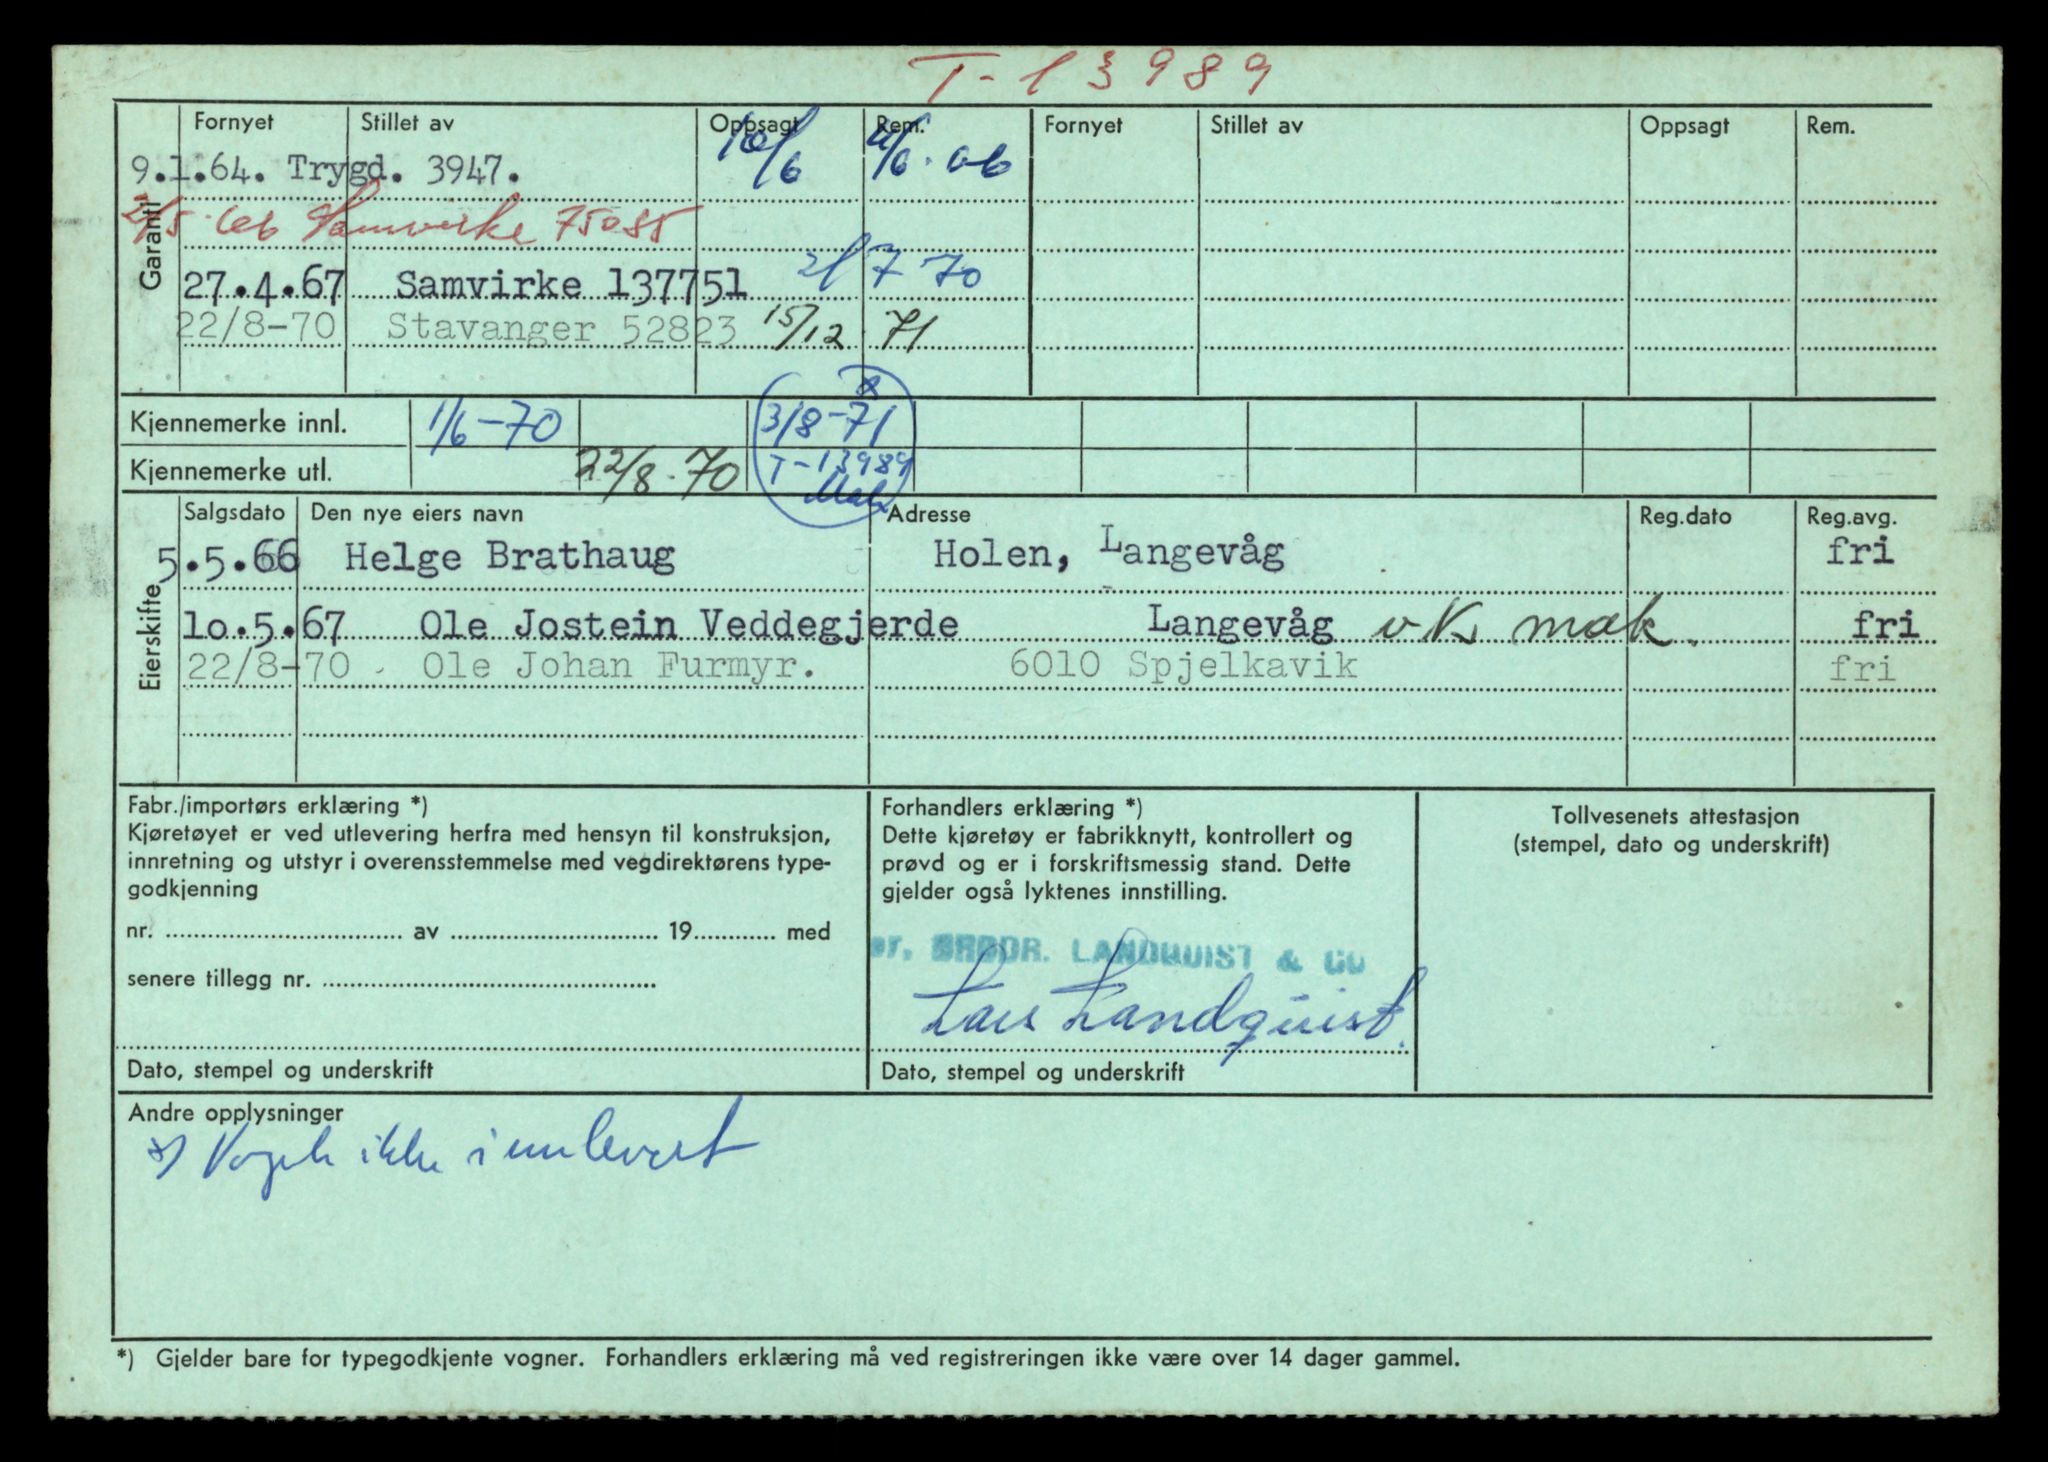 T-13989
Fornyet Stillet av Oppsagt Rem. Fornyet Stillet av Oppsagt Rem.
Garanti
9.1.64. Trygd. 3947. 10/6 4/6.66
2/5.66 Samvirke 75085
27.4.67 Samvirke 137751 2/7 70
22/8-70 Stavanger 52823 15/12 71
Kjennemerke innl. 1/6-70 3/8-71
Kjennemerke utl. 22/8-70 T-13989
Salgsdato Den nye eiers navn Adresse Reg.dato Reg.avg.
Eierskifte
5.5.66 Helge Brathaug Holen, Langevåg fri
10.5.67 Ole Jostein Veddegjerde Langevåg v K mak. fri
22/8-70 Ole Johan Furmyr. 6010 Spjelkavik fri
Fabr./importørs erklæring *)
Kjøretøyet er ved utlevering herfra med hensyn til konstruksjon,
innretning og utstyr i overensstemmelse med vegdirektørens type-
godkjenning
nr. av 19 med
senere tillegg nr.
Dato, stempel og underskrift
Forhandlers erklæring *)
Dette kjøretøy er fabrikknytt, kontrollert og
prøvd og er i forskriftsmessig stand. Dette
gjelder også lyktenes innstilling.
pr. BRØDR. LANDQUIST & CO
Lars Landquist.
Dato, stempel og underskrift
Tollvesenets attestasjon
(stempel, dato og underskrift)
Andre opplysninger
*) Vogde ikke innlevert
*) Gjelder bare for typegodkjente vogner. Forhandlers erklæring må ved registreringen ikke være over 14 dager gammel.